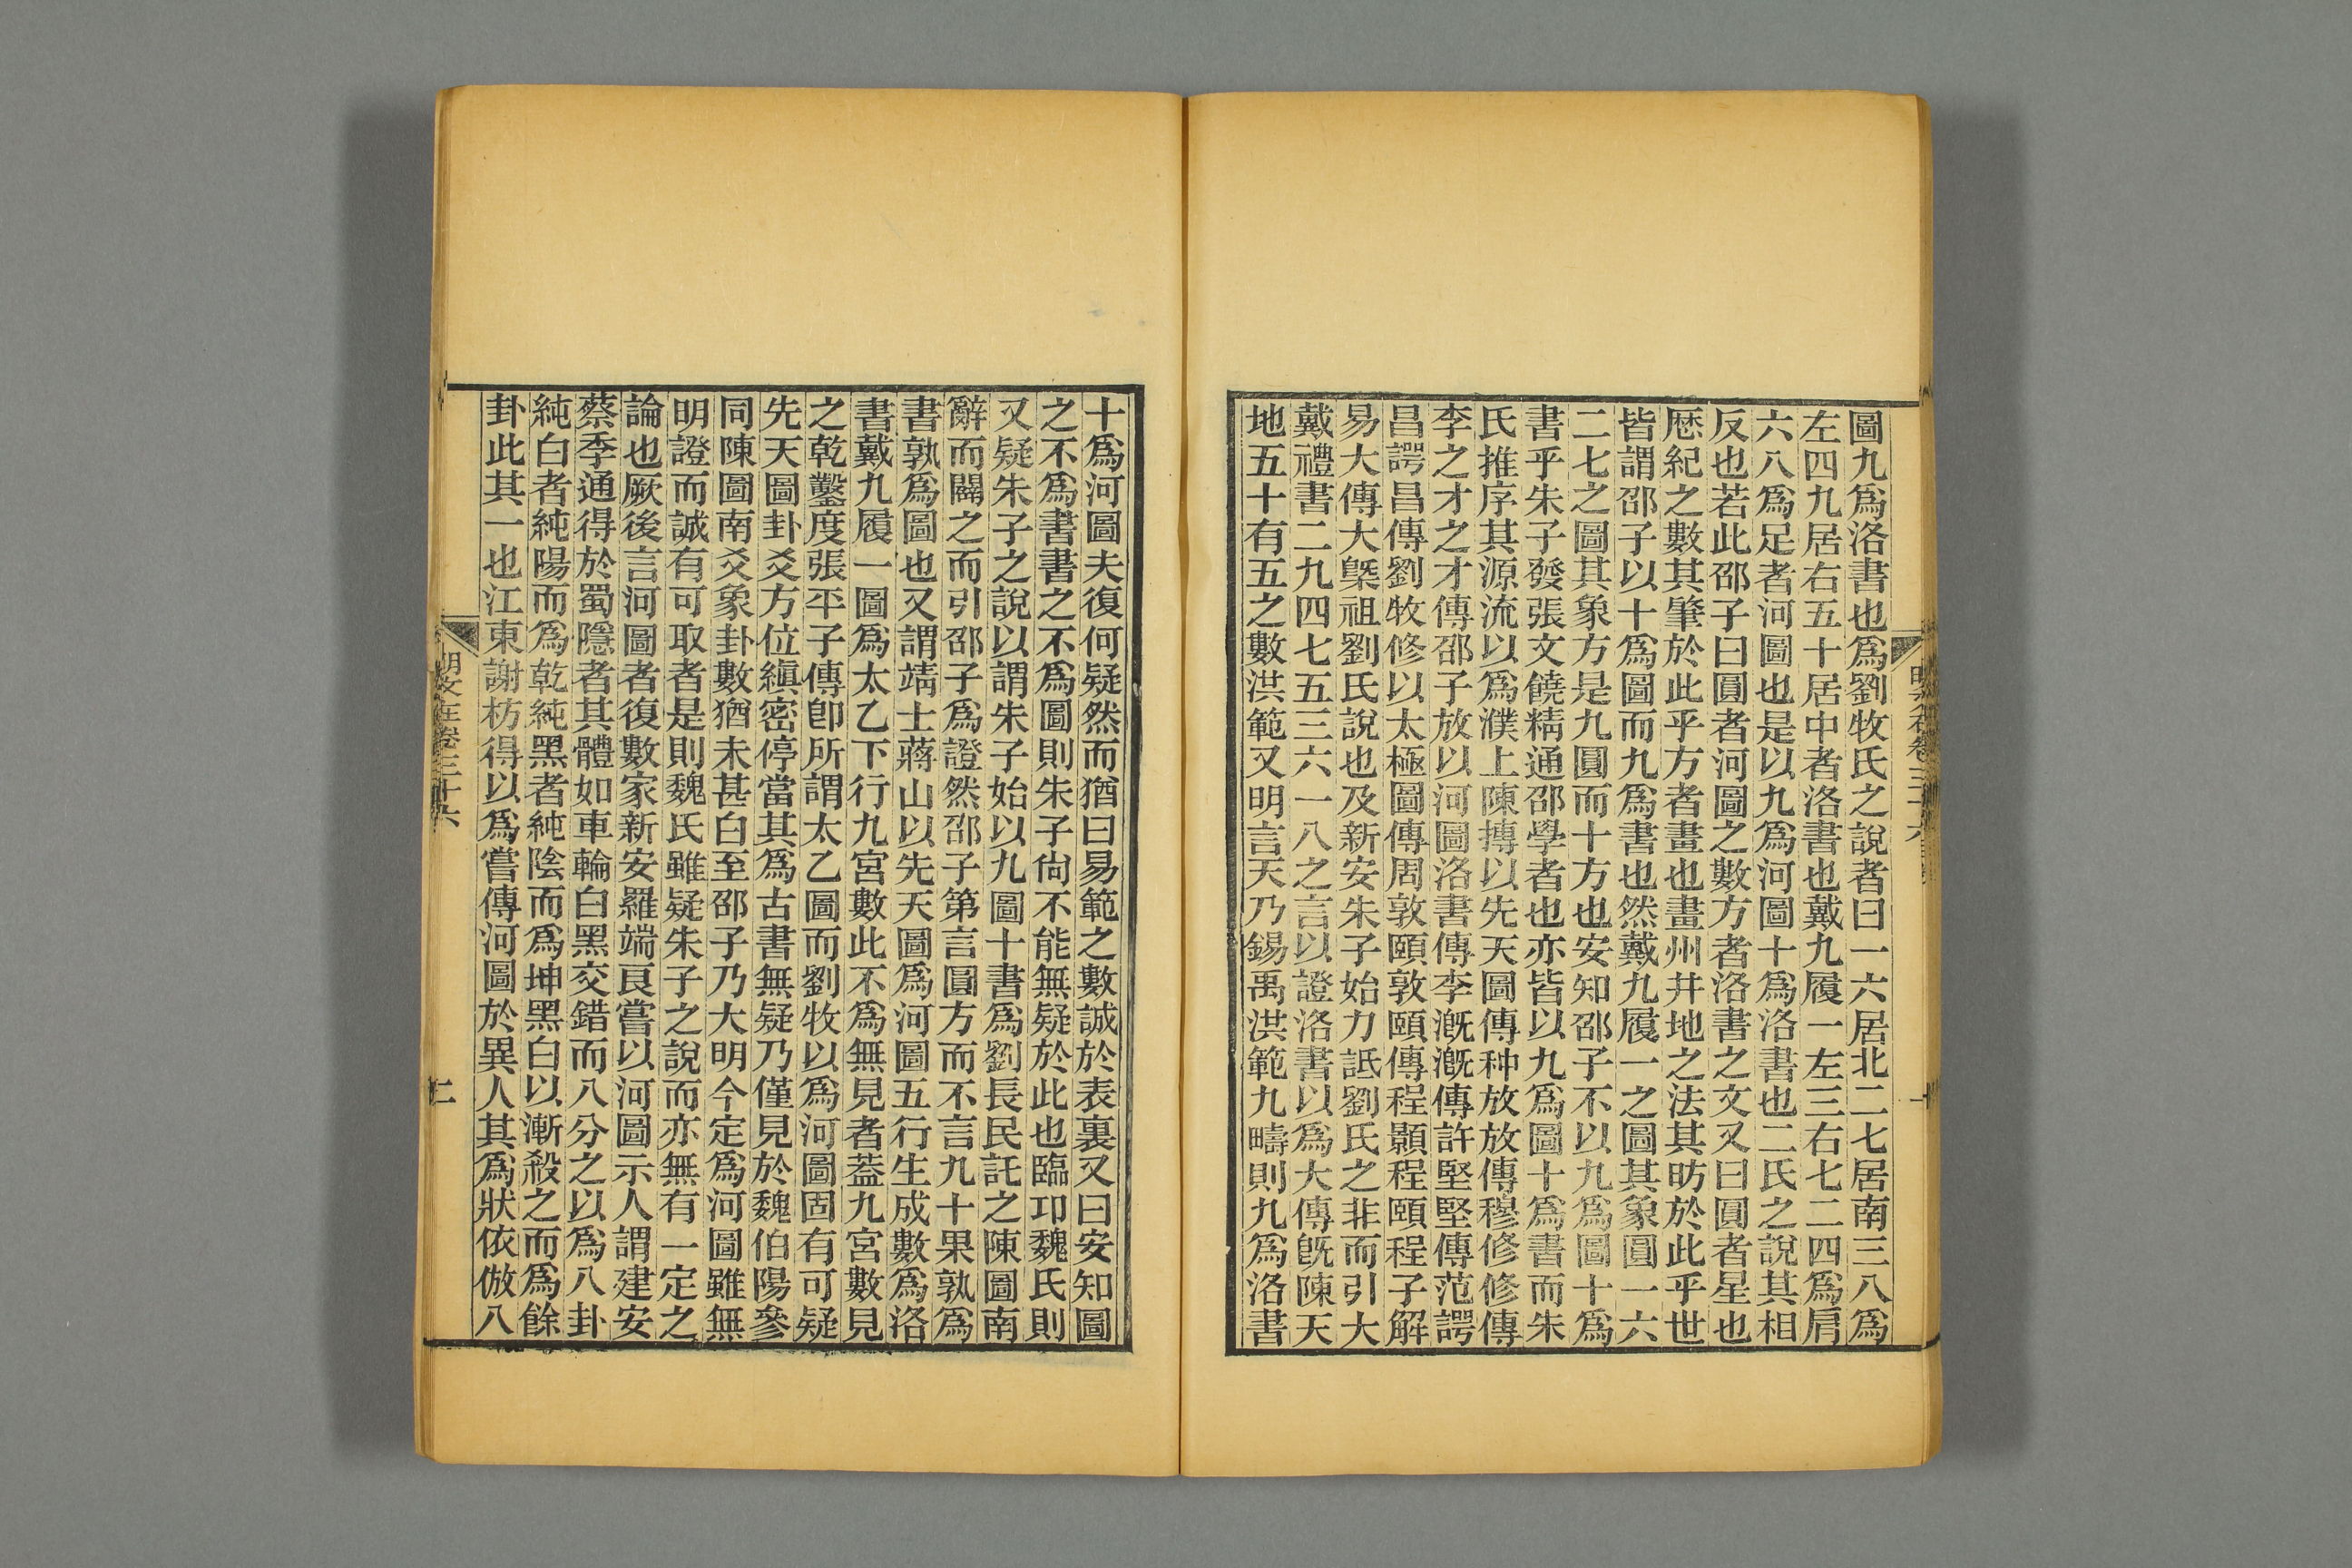 圖九爲洛書也爲劉牧氏之說者曰一六居北二七居南三八爲
左四九居右五十居中者洛書也戴九履一左三右七二四爲肩
六八爲足者河圖也是以九爲河圖十爲洛書也二氏之說其相
反也若此邵子曰圓者河圖之數方者洛書之文又曰圓者星也
厯紀之數其肇於此乎方者畫也畫州井地之法其昉於此乎世
皆謂邵子以十爲圖而九爲書也然戴九履一之圖其象圓一六
二七之圖其象方是九圓而十方也安知邵子不以九爲圖十爲
書乎朱子發張文饒精通邵學者也亦皆以九爲圖十爲書而朱
氏推序其源流以爲濮上陳摶以先天圖傳种放放傳穆修修傳
李之才之才傳邵子放以河圖洛書傳李漑漑傳許堅堅傳范諤
昌諤昌傳劉牧修以太極圖傳周敦頤敦頤傳程顥程頤程子解
易大傳大槩祖劉氏說也及新安朱子始力詆劉氏之非而引大
戴禮書二九四七五三六一八之言以證洛書以爲大傳旣陳天
地五十有五之數洪範又明言天乃錫禹洪範九疇則九爲洛書
十爲河圖夫復何疑然而猶曰易範之數誠於表裏又曰安知圖
之不爲書書之不爲圖則朱子尙不能無疑於此也臨卭魏氏則
又疑朱子之說以謂朱子始以九圖十書爲劉長民託之陳圖南
辭而闢之而引邵子爲證然邵子第言圓方而不言九十果孰爲
書孰爲圖也又謂靖士蔣山以先天圖爲河圖五行生成數爲洛
書戴九履一圖爲太乙下行九宮數此不爲無見者蓋九宮數見
之乾鑿度張平子傳卽所謂太乙圖而劉牧以爲河圖固有可疑
先天圖卦爻方位縝密停當其爲古書無疑乃僅見於魏伯陽參
同陳圖南爻象卦數猶未甚白至邵子乃大明今定爲河圖雖無
明證而誠有可取者是則魏氏雖疑朱子之說而亦無有一定之
論也厥後言河圖者復數家新安羅端良嘗以河圖示人謂建安
蔡季通得於蜀隱者其體如車輪白黑交錯而八分之以爲八卦
純白者純陽而爲乾純黑者純陰而爲坤黑白以漸殺之而爲餘
卦此其一也江東謝枋得以爲嘗傳河圖於異人其爲狀依倣八
明文在卷三十六
二